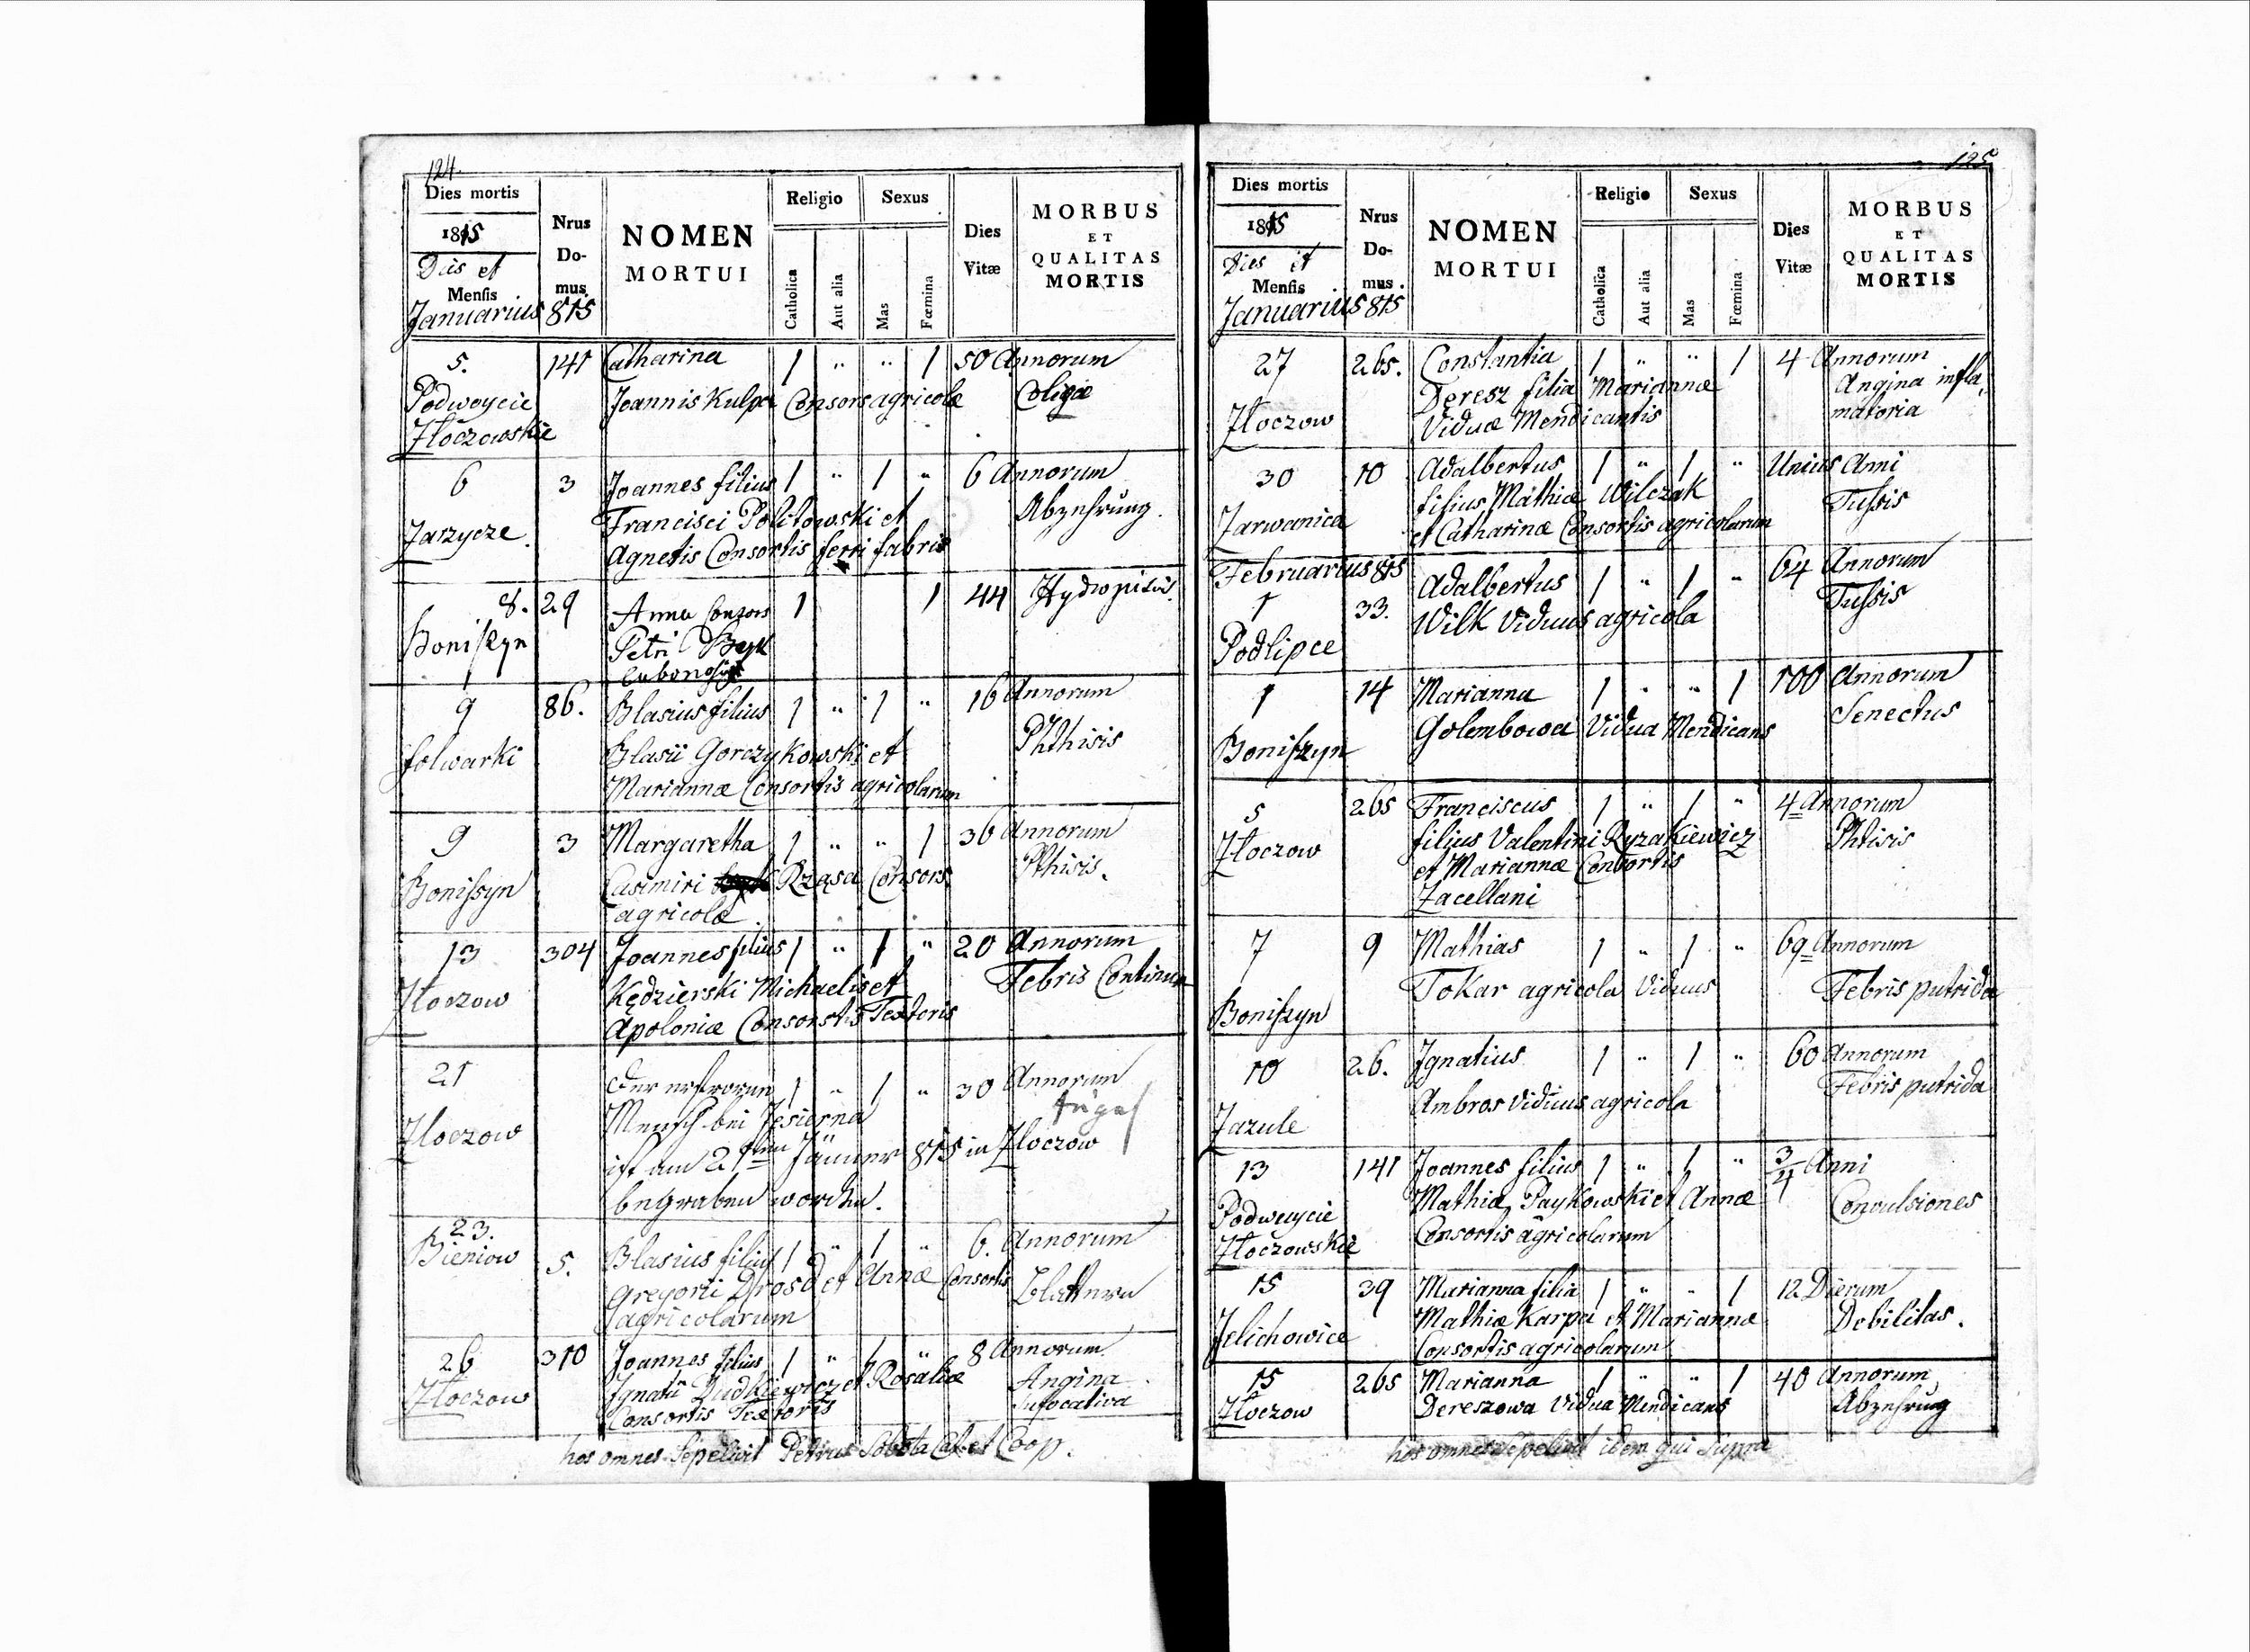 124
Dies mortis
1815
Dies et
Mensis
Januarius
Nrus
Do-
mus
815
NOMEN
MORTUI
Religio
Catholica
Aut alia
Sexus
Mas
Fœmina
Dies
Vitæ
MORBUS
ET
QUALITAS
MORTIS
5. 141 Catharina 1 " " 1 50 Annorum
Podwoycie Joannis Kulpa Consors agricolæ Colicæ
Złoczowskie
6 3 Joannes filius 1 " 1 " 6 Annorum
Francisci Politowski et Abzehrung.
Zarzycze. Agnetis Consortis ferri fabris
8. 29 Anna Consors 1 1 44 Hydropisis.
Boniszyn Petri Byk
9 86. Blasius filius 1 " 1 " 16 Annorum
folwarki Blasii Gorczykowski et Phthisis
Mariannæ Consortis agricolarum
9 3 Margaretha 1 " " 1 36 Annorum
Boniszyn Casimiri Rząsa Consors Pthisis.
agricolæ
13 304 Joannes filius 1 " 1 " 20 Annorum
Złoczow Kędzierski Michaelis et Febris Continua
Apoloniæ Consorstis Textoris
21 Der erfrorene 1 " 1 " 30 Annorum
Złoczow Mensch bei Jesierna
ist am 21ten Jänner 815 in Złoczow
begraben worden.
23.
Bieniow 5. Blasius filius 1 " 1 " 6. Annorum
Gregorii Drosd et Annæ Consortis Blattern
agricolarum
26 310 Joannes filius 1 " 1 " 8 Annorum
Złoczow Ignatii Dudkiewicz et Rosaliæ Angina
Consortis Textoris Sufocativa
hos omnes Sepelivit Petrus Sobota Cat. et Coop.
125
Dies mortis
1815
Dies et
Mensis
Januarius
Nrus
Do-
mus.
815
NOMEN
MORTUI
Religio
Catholica
Aut alia
Sexus
Mas
Fœmina
Dies
Vitæ
MORBUS
ET
QUALITAS
MORTIS
27 265. Constantia 1 " " 1 4 Annorum
Deresz filia Mariannæ Angina infla,
Złoczow Viduæ Mendicantis matoria
30 10 Adalbertus 1 " 1 " Unius Anni
filius Mathiæ Wilczak Tussis
Jarwanica et Catharinæ Consortis agricolarum
Februarius 815
1 33. Adalbertus 1 " 1 " 64 Annorum
Wilk Viduus agricola Tussis
Podlipce
1 14 Marianna 1 " " 1 100 Annorum
Golembowa Vidua Mendicans Senectus
Boniszyn
5 265 Franciscus 1 " 1 " 4 Annorum
Złoczow filius Valentini Ryzakiewicz Phtisis
et Mariannæ Consortis
Zacellani
7 9 Mathias 1 " 1 " 69 Annorum
Tokar agricola Viduus Febris putrida
Boniszyn
10 26. Ignatius 1 " 1 " 60 Annorum
Ambros Viduus agricola Febris putrida
Zazule
13 141 Joannes filius 1 " 1 " 3/4 Anni
Podwuycie Mathiæ Paykowski et Annæ Convulsiones
Złoczowskie Consortis agricolarum
15 39 Marianna filia 1 " " 1 12 Dierum
Jelichowice Mathiæ Karpa et Mariannæ Debilitas.
Consortis agricolarum
15 265 Marianna 1 " " 1 40 Annorum
Złoczow Dereszowa Vidua Mendicans Abzehrung
hos omnes Sepelivit idem qui supra